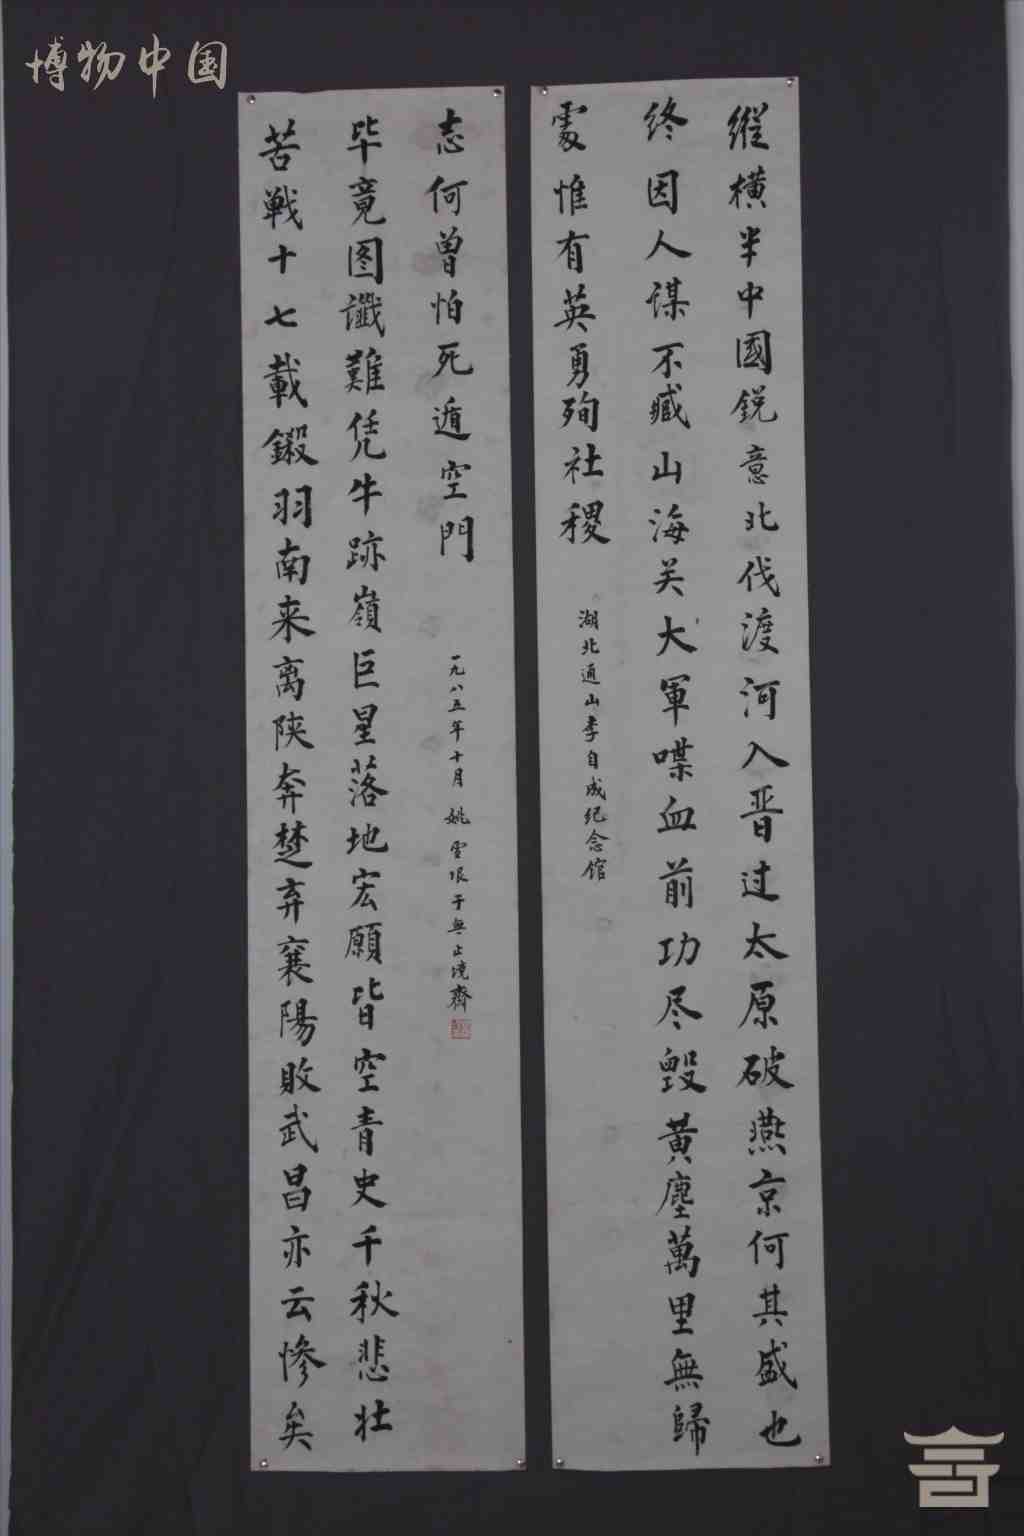 博物中国
縱橫半中國鋭意北伐渡河入晋过太原破燕京何其盛也
终因人谋不臧山海关大軍喋血前功尽毁黄塵萬里無歸
處惟有英勇殉社稷
湖北通山李自成纪念馆
苦戰十七載鎩羽南来离陕奔楚弃襄陽敗武昌亦云惨矣
毕竟图讖難凭牛跡嶺巨星落地宏願皆空青史千秋悲壮
志何曾怕死遁空門
一九八五年十月姚雪垠于無止境齋